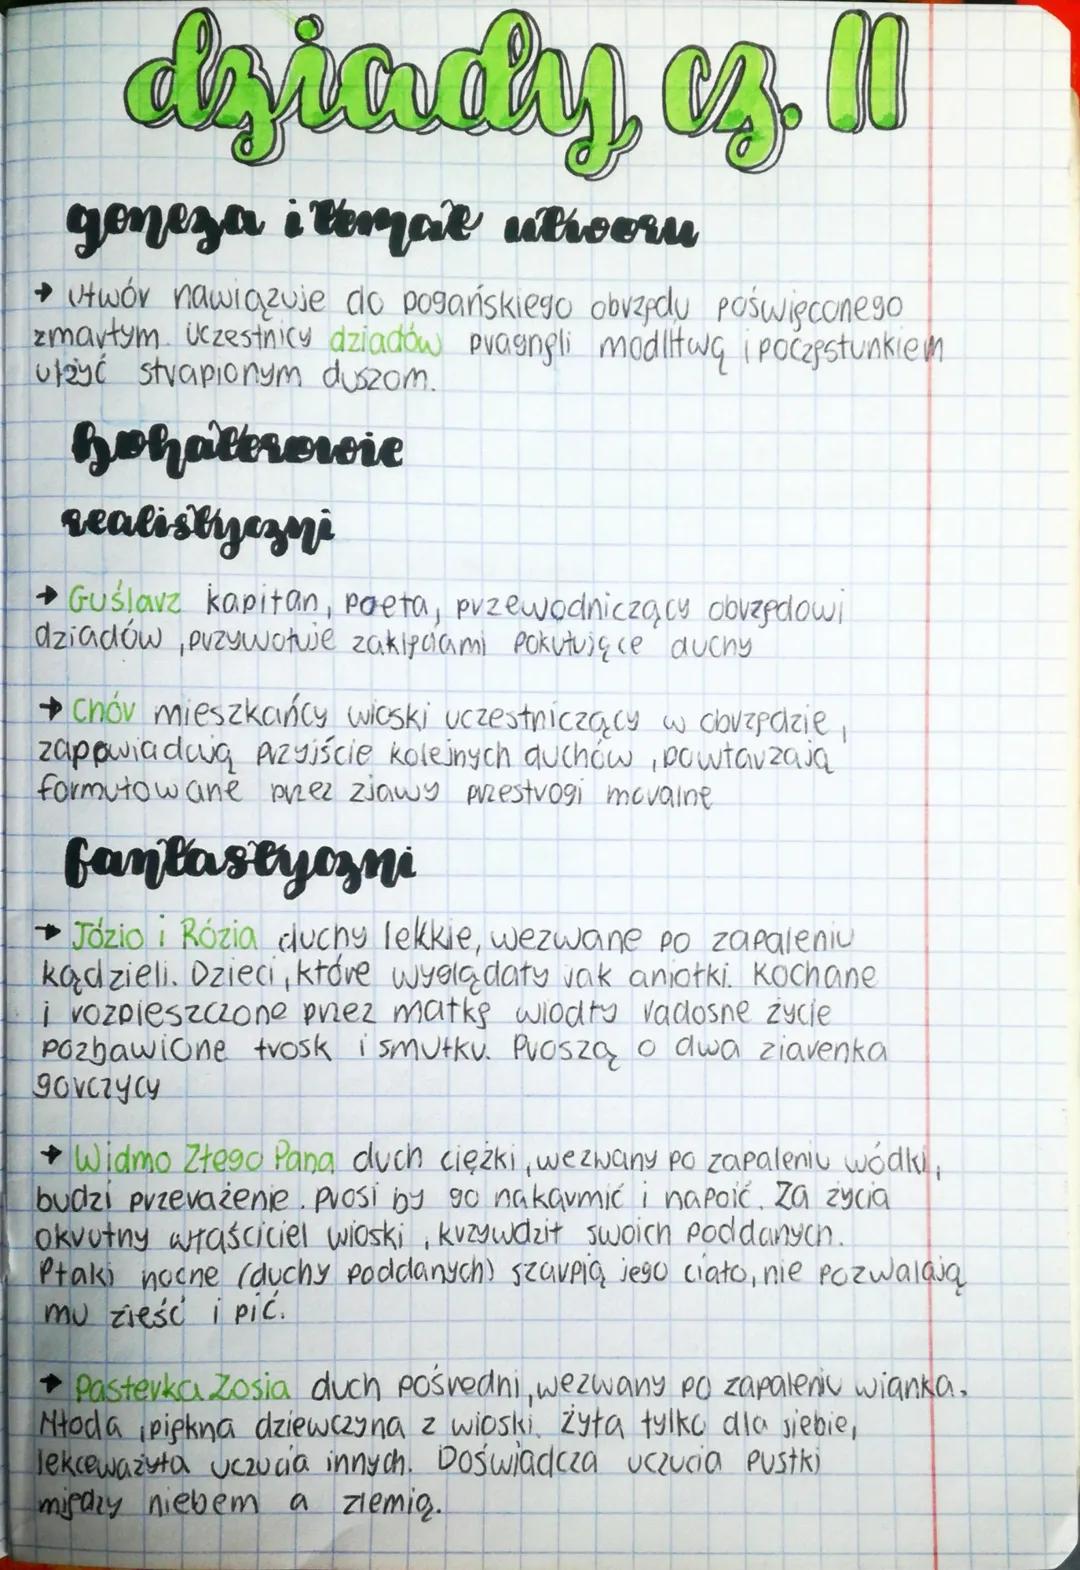 dziady cz. II
geneza i temat utworu
→ Utwór nawiązuje do pogańskiego obrzędu poświęconego
zmarłym. Uczestnicy dziadów pragnęli modlitwą i poczęstunkiem
ulżyć strapionym duszom.
Bohaterowie
realistyczni
→ Guślarz kapłan, poeta, przewodniczący obrzędowi
dziadów, przywołuje zaklęciami pokutujące duchy
→ Chór mieszkańcy wioski uczestniczący w obrzędzie,
zapowiadają przyjście kolejnych duchów, powtarzają
formułowane przez zjawy przestrogi moralne
fantastyczni
→ Józio i Rózia duchy lekkie, wezwane po zapaleniu
kądzieli. Dzieci, które wyglądały jak aniołki. Kochane
i rozpieszczone przez matkę wiodły radosne życie
pozbawione trosk i smutku. Proszą o dwa ziarenka
gorczycy
→ Widmo Złego Pana duch ciężki, wezwany po zapaleniu wódki,
budzi przerażenie. Prosi by go nakarmić i napoić. Za życia
okrutny właściciel wioski, krzywdził swoich poddanych.
Ptaki nocne (duchy poddanych) szarpią jego ciało, nie pozwalają
mu zjeść i pić.
→ Pasterka Zosia duch pośredni, wezwany po zapaleniu wianka.
Młoda, piękna dziewczyna z wioski. Żyła tylko dla siebie,
lekceważyła uczucia innych. Doświadcza uczucia pustki
między niebem a ziemią.